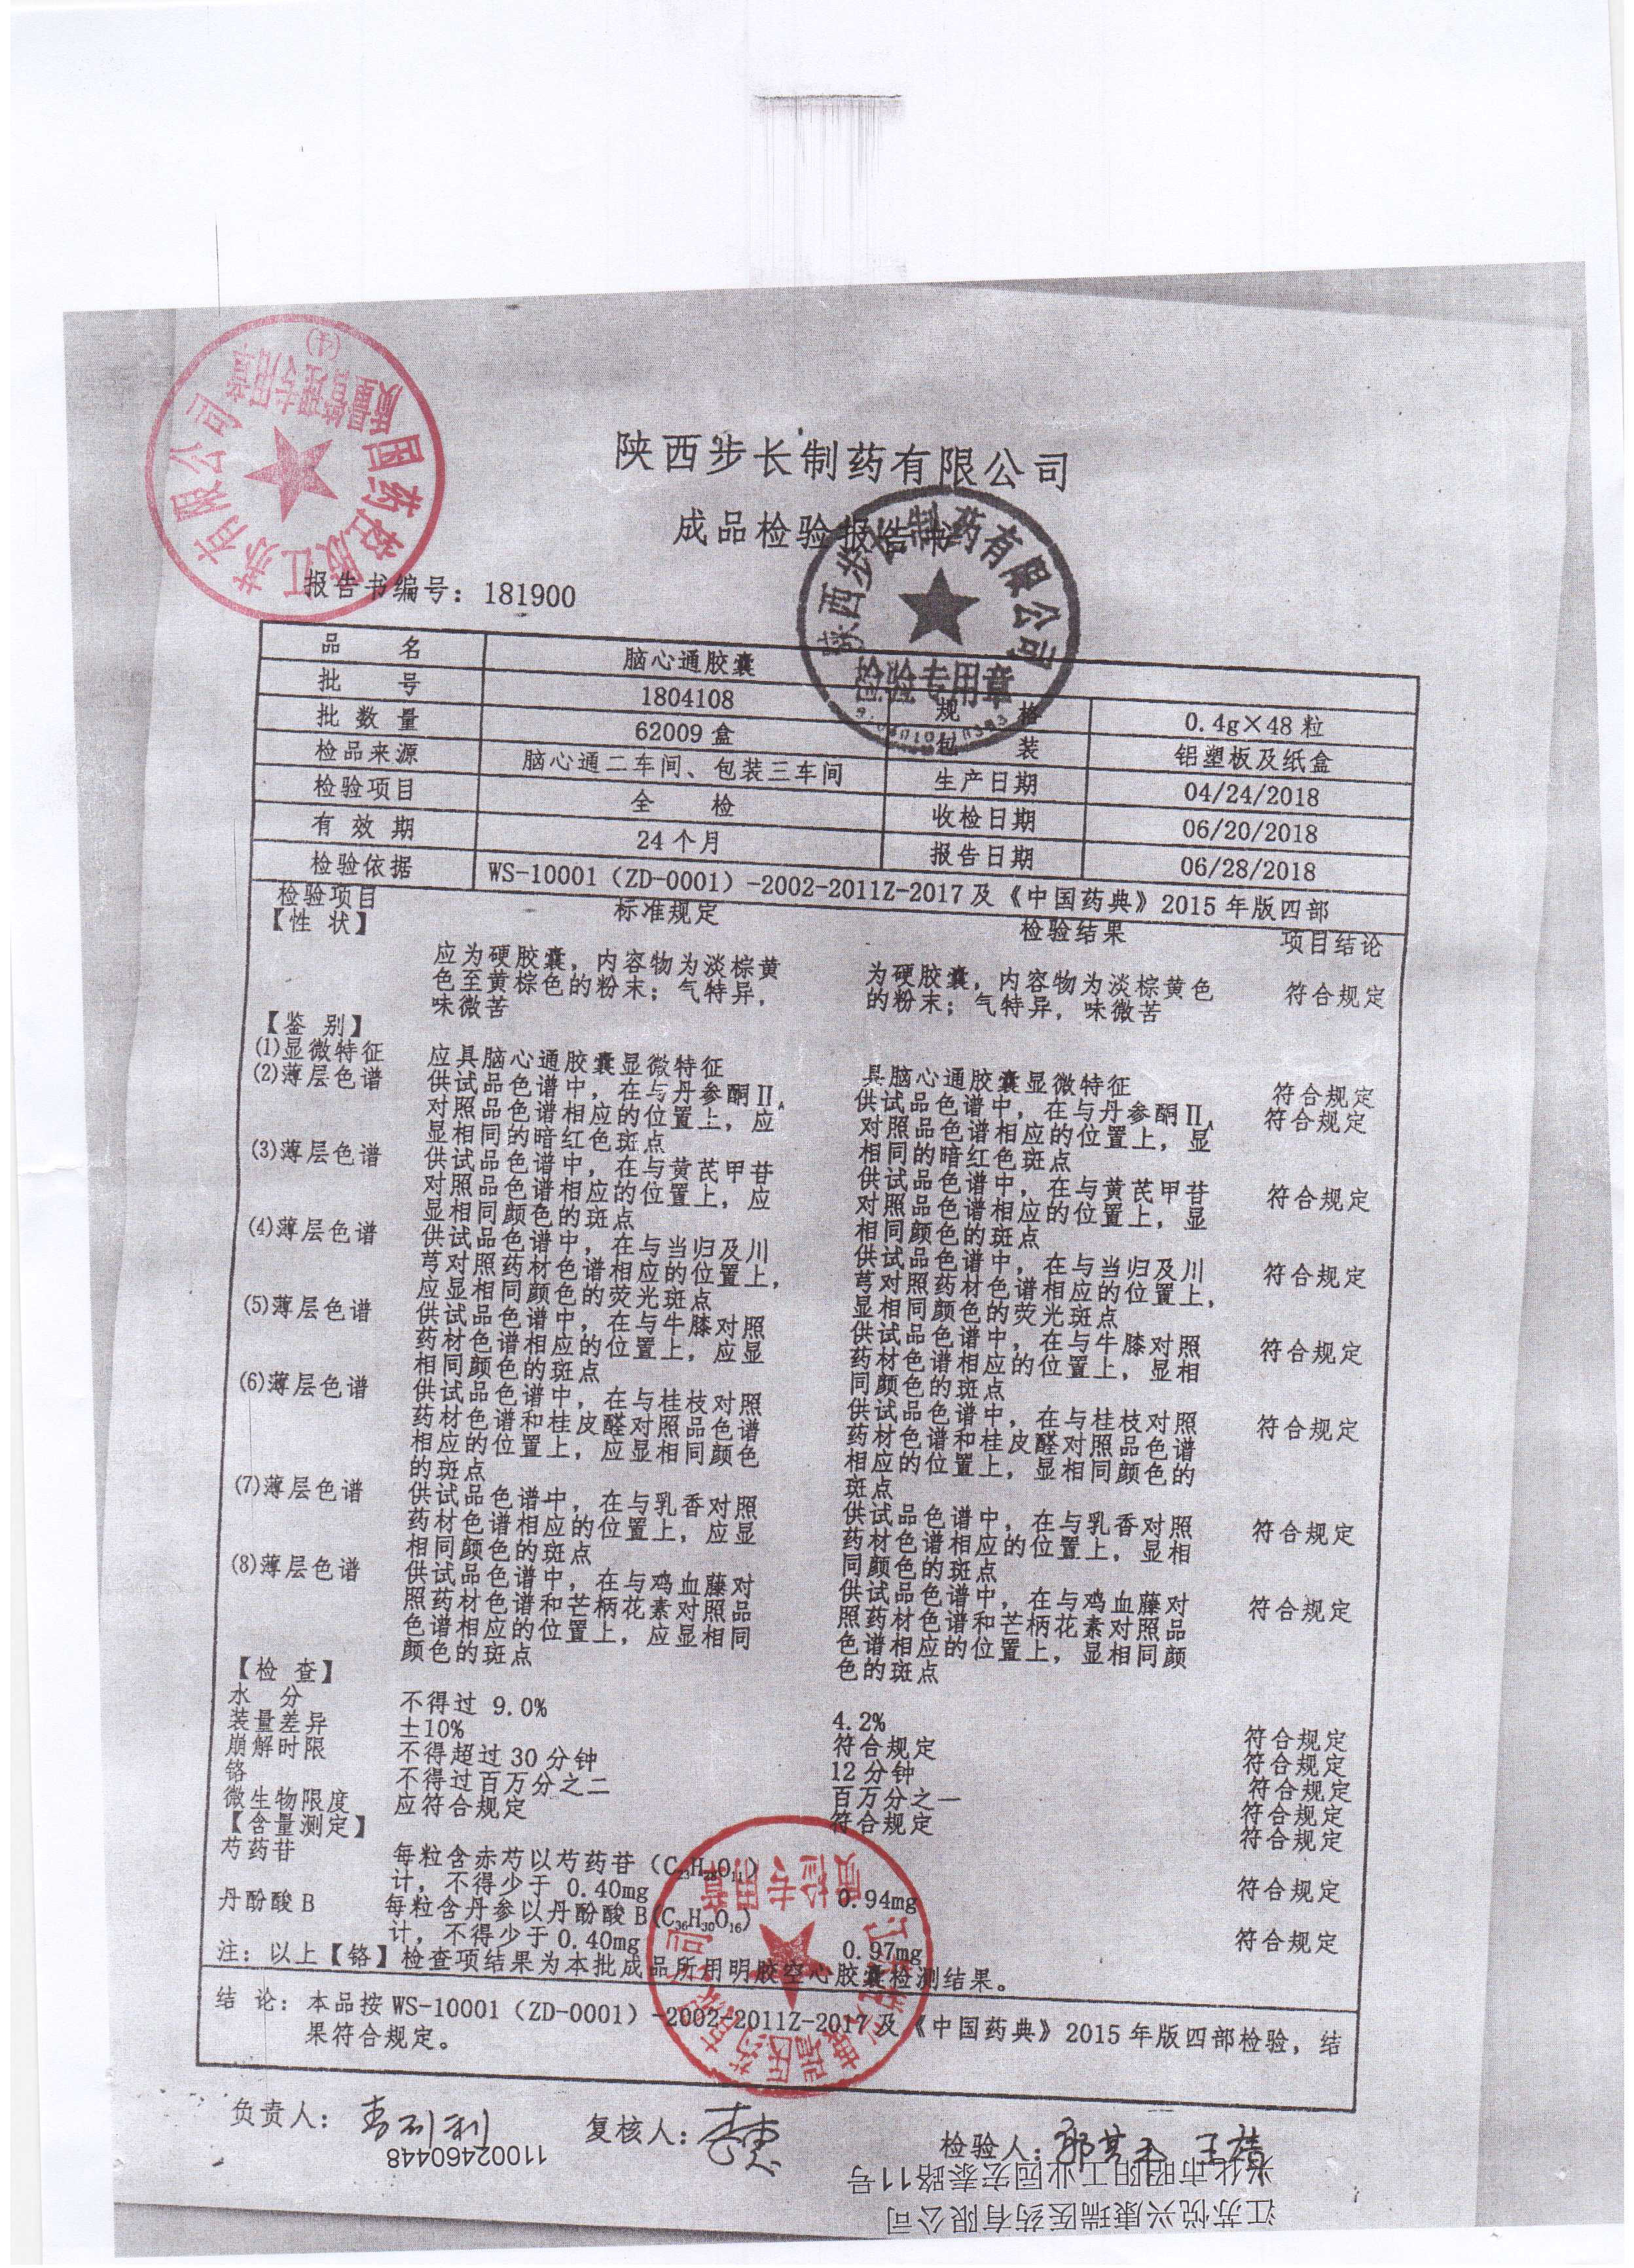 陕西步长制药有限公司
成品检验报告书
报告书编号：181900
品 名 脑心通胶囊
批 号 1804108 规 格 0.4g×48粒
批数量 62009盒 包 装 铝塑板及纸盒
检品来源 脑心通二车间、包装三车间 生产日期 04/24/2018
检验项目 全 检 收检日期 06/20/2018
有效期 24个月 报告日期 06/28/2018
检验依据 WS-10001（ZD-0001）-2002-2011Z-2017及《中国药典》2015年版四部
检验项目 标准规定 检验结果 项目结论
【性 状】
应为硬胶囊，内容物为淡棕黄 为硬胶囊，内容物为淡棕黄色 符合规定
色至黄棕色的粉末；气特异， 的粉末；气特异，味微苦
味微苦
【鉴 别】
⑴显微特征 应具脑心通胶囊显微特征 具脑心通胶囊显微特征 符合规定
⑵薄层色谱 供试品色谱中，在与丹参酮ⅡA 供试品色谱中，在与丹参酮ⅡA 符合规定
对照品色谱相应的位置上，应 对照品色谱相应的位置上，显
显相同的暗红色斑点 相同的暗红色斑点
⑶薄层色谱 供试品色谱中，在与黄芪甲苷 供试品色谱中，在与黄芪甲苷 符合规定
对照品色谱相应的位置上，应 对照品色谱相应的位置上，显
显相同颜色的斑点 相同颜色的斑点
⑷薄层色谱 供试品色谱中，在与当归及川 供试品色谱中，在与当归及川 符合规定
芎对照药材色谱相应的位置上， 芎对照药材色谱相应的位置上，
应显相同颜色的荧光斑点 显相同颜色的荧光斑点
⑸薄层色谱 供试品色谱中，在与牛膝对照 供试品色谱中，在与牛膝对照 符合规定
药材色谱相应的位置上，应显 药材色谱相应的位置上，显相
相同颜色的斑点 同颜色的斑点
⑹薄层色谱 供试品色谱中，在与桂枝对照 供试品色谱中，在与桂枝对照 符合规定
药材色谱和桂皮醛对照品色谱 药材色谱和桂皮醛对照品色谱
相应的位置上，应显相同颜色 相应的位置上，显相同颜色的
的斑点 斑点
⑺薄层色谱 供试品色谱中，在与乳香对照 供试品色谱中，在与乳香对照 符合规定
药材色谱相应的位置上，应显 药材色谱相应的位置上，显相
相同颜色的斑点 同颜色的斑点
⑻薄层色谱 供试品色谱中，在与鸡血藤对 供试品色谱中，在与鸡血藤对 符合规定
照药材色谱和芒柄花素对照品 照药材色谱和芒柄花素对照品
色谱相应的位置上，应显相同 色谱相应的位置上，显相同颜
颜色的斑点 色的斑点
【检 查】
水 分 不得过 9.0% 4.2% 符合规定
装量差异 ±10% 符合规定 符合规定
崩解时限 不得超过30分钟 12分钟 符合规定
铬 不得过百万分之二 百万分之一 符合规定
微生物限度 应符合规定 符合规定 符合规定
【含量测定】
芍药苷 每粒含赤芍以芍药苷（C23H28O11） 0.94mg 符合规定
计，不得少于 0.40mg
丹酚酸B 每粒含丹参以丹酚酸B(C36H30O16) 0.97mg 符合规定
计，不得少于0.40mg
注：以上【铬】检查项结果为本批成品所用明胶空心胶囊检测结果。
结 论：本品按WS-10001（ZD-0001）-2002-2011Z-2017及《中国药典》2015年版四部检验，结
果符合规定。
负责人： 复核人： 检验人：
11002460448
兴化市昭阳工业园宏泰路11号
江苏悦兴康瑞医药有限公司
国药控股江苏有限公司
质量管理专用章
陕西步长制药有限公司
检验专用章
质检专用章